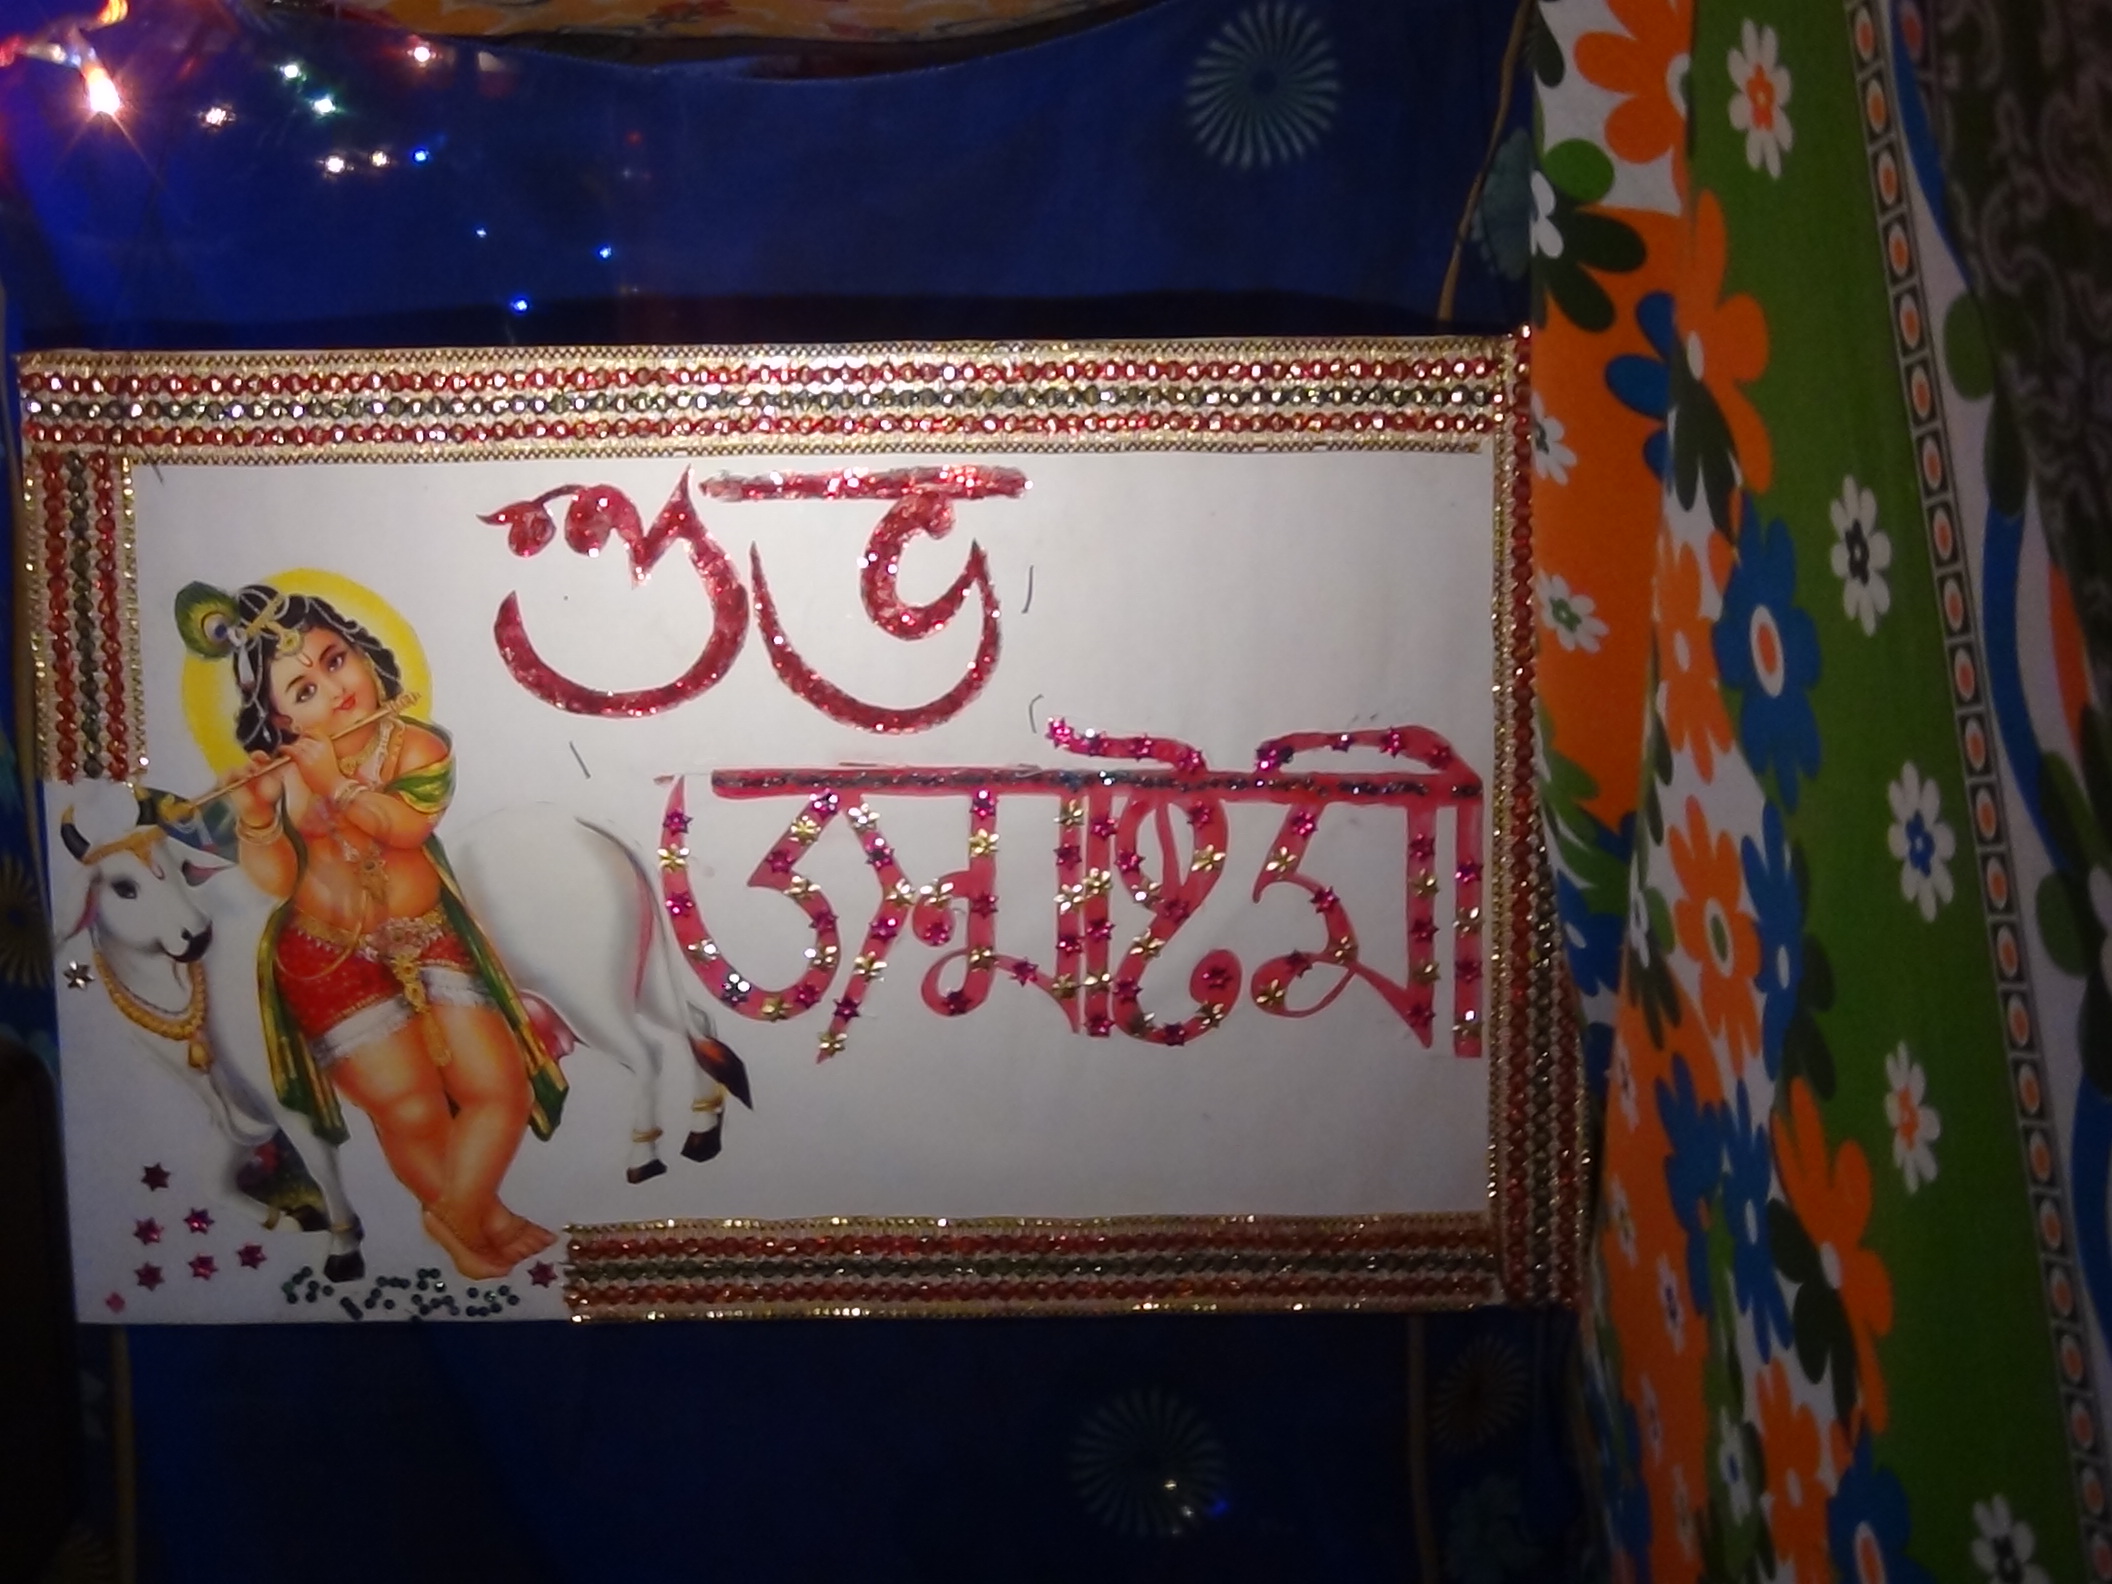 শুভ
জন্মাষ্টমী